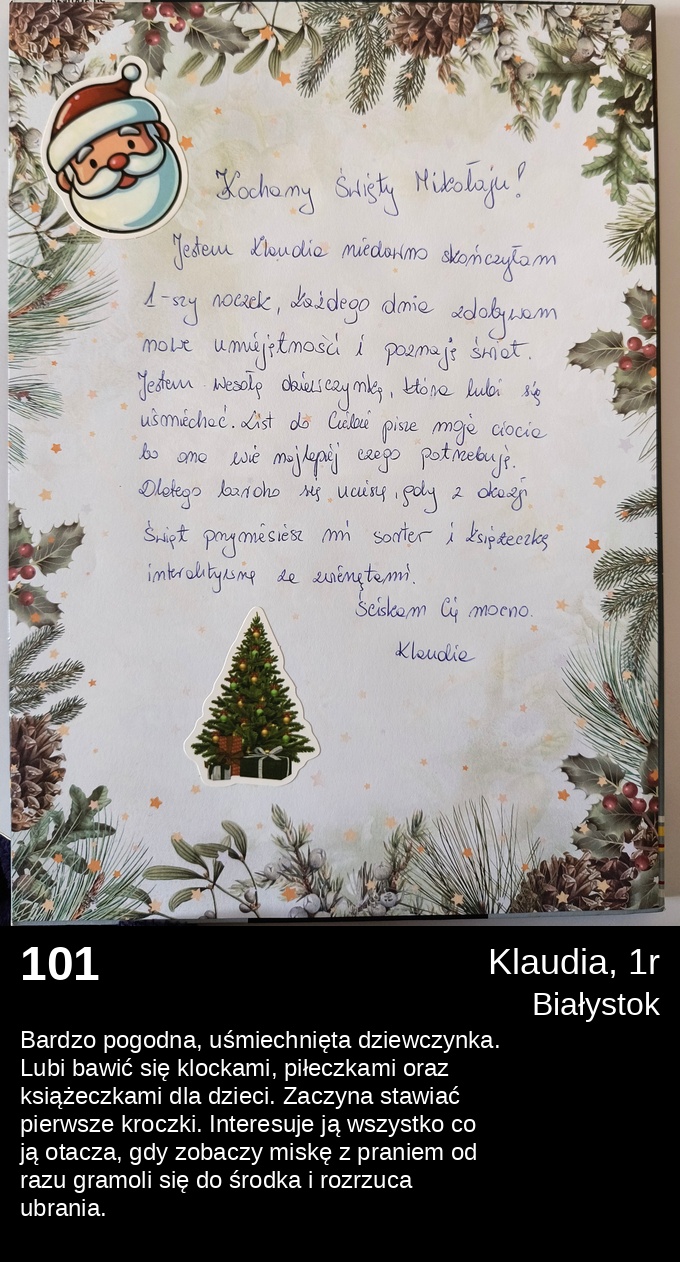 Kochany Święty Mikołaju!
Jestem Klaudia niedawno skończyłam
1-szy roczek, każdego dnia zdobywam
nowe umiejętności i poznaję świat.
Jestem wesołą dziewczynką, która lubi się
uśmiechać. List do Ciebie pisze moja ciocia
bo ona wie najlepiej czego potrzebuję.
Dlatego bardzo się ucieszę, gdy z okazji
Świąt przyniesiesz mi sorter i książeczkę
interaktywną ze zwierzętami.
Ściskam Cię mocno.
Klaudia
101
Klaudia, 1r
Białystok
Bardzo pogodna, uśmiechnięta dziewczynka.
Lubi bawić się klockami, piłeczkami oraz
książeczkami dla dzieci. Zaczyna stawiać
pierwsze kroczki. Interesuje ją wszystko co
ją otacza, gdy zobaczy miskę z praniem od
razu gramoli się do środka i rozrzuca
ubrania.